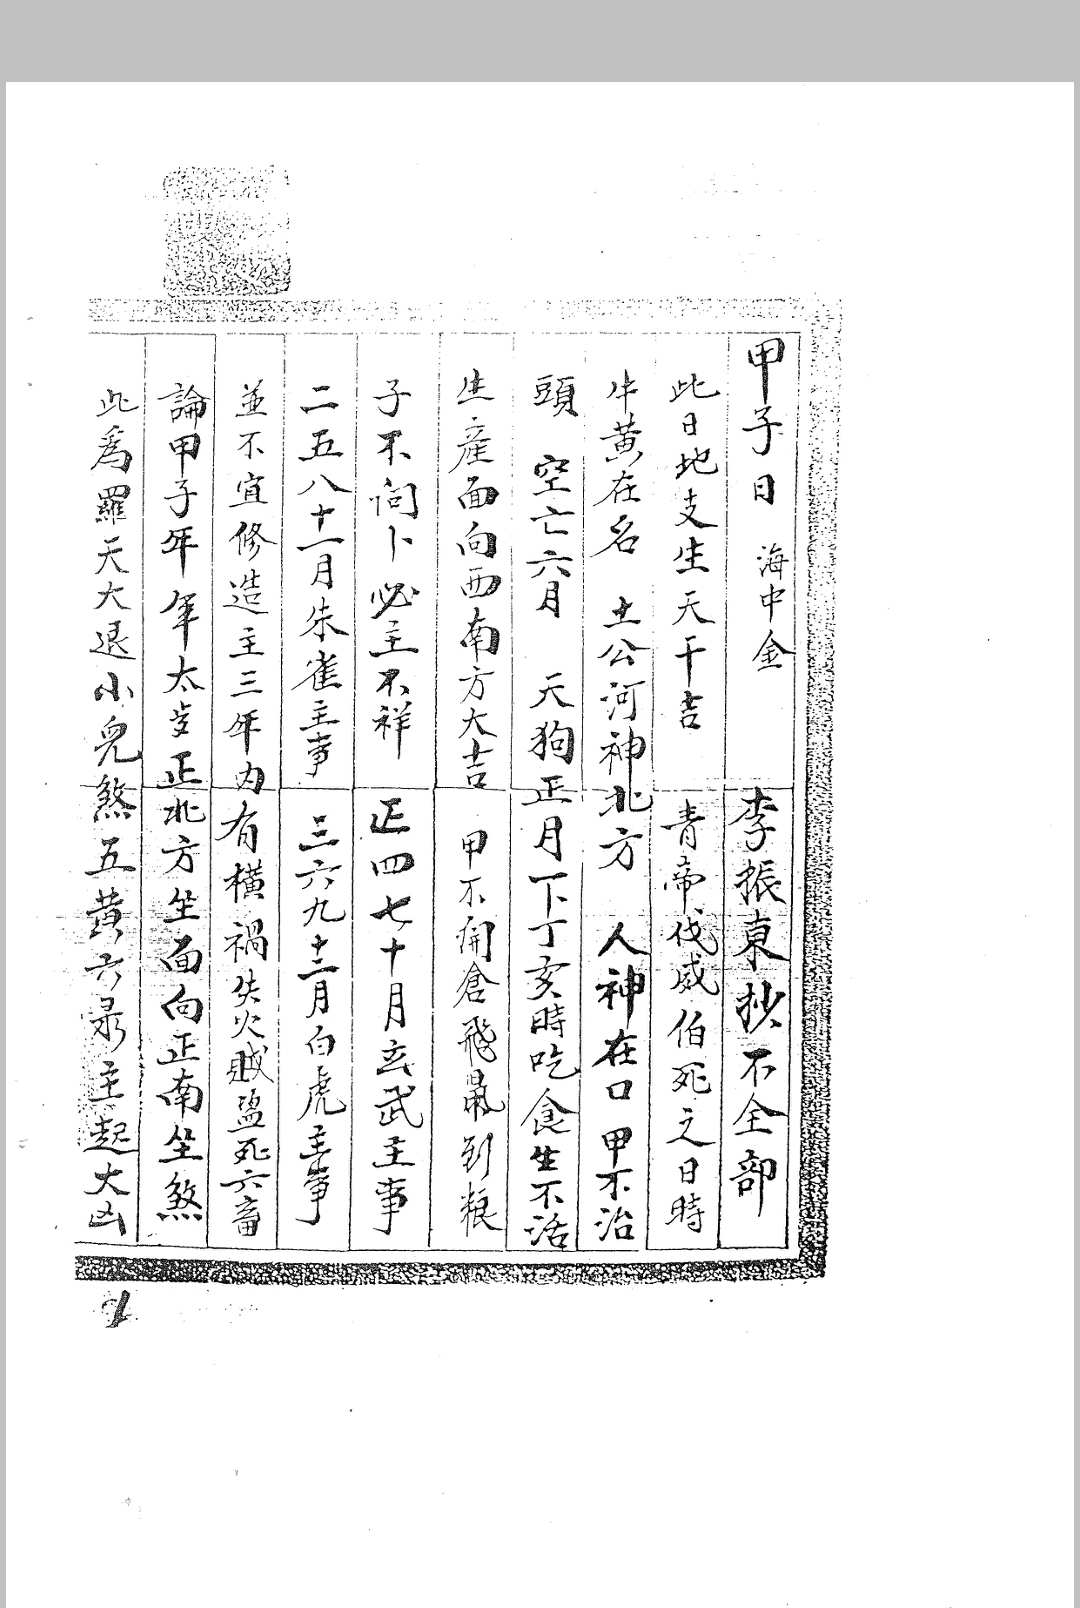 甲子日 海中金 李振東抄不全部
此日地支生天干吉 青帝伐威伯死之日時
牛黄在名 土公河神北方 人神在口 甲不治
頭 空亡六月 天狗正月下丁亥時吃食生不活
生產面向西南方大吉 甲不開倉飛 到粮
子不問卜必主不祥 正四七十月玄武主事
二五八十一月朱雀主事 三六九十二月白虎主事
並不宜修造主三年内有橫禍失火賊盜死六畜
論甲子年 年太歲正北方坐面向正南坐煞
此爲羅天大退小兒煞五黄六 主起大凶